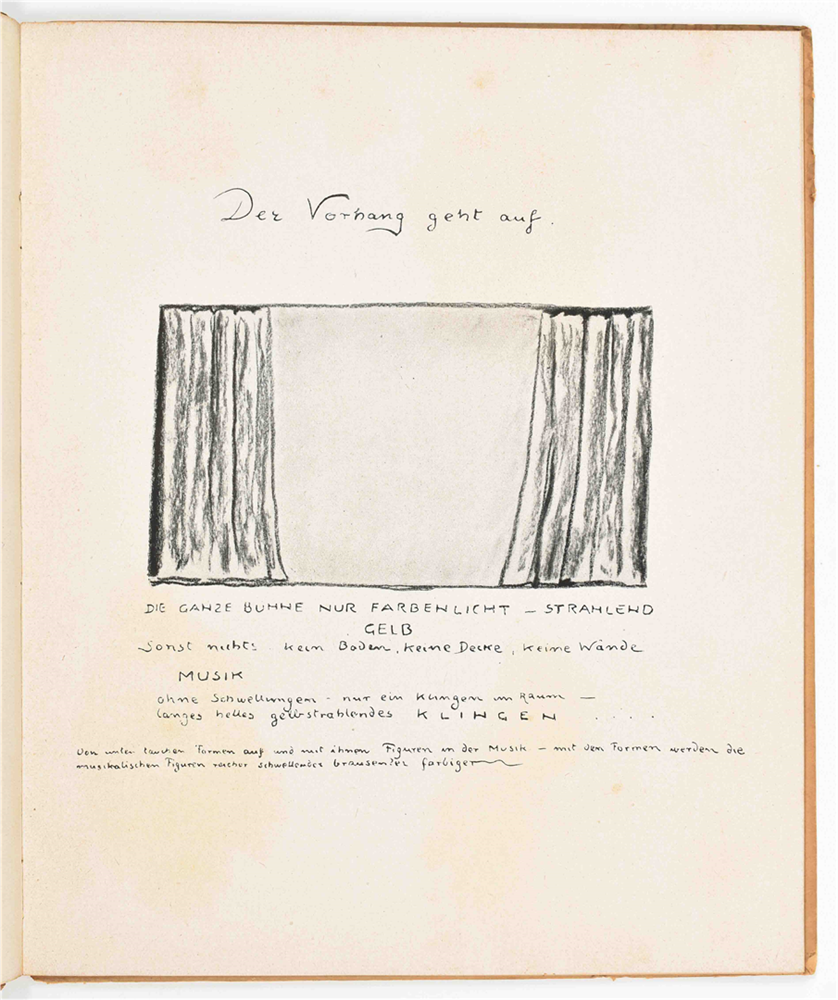 Der Vorhang geht auf.
DIE GANZE BÜHNE NUR FARBENLICHT – STRAHLEND
GELB
Sonst nichts. kein Boden, keine Decke, keine Wände
MUSIK
ohne Schwellungen – nur ein Klingen im Raum –
langes helles gelbstrahlendes KLINGEN . . . .
Von unten tauchen Formen auf und mit ihnen Figuren in der Musik – mit den Formen werden die
musikalischen Figuren reicher schwellender brausender farbiger